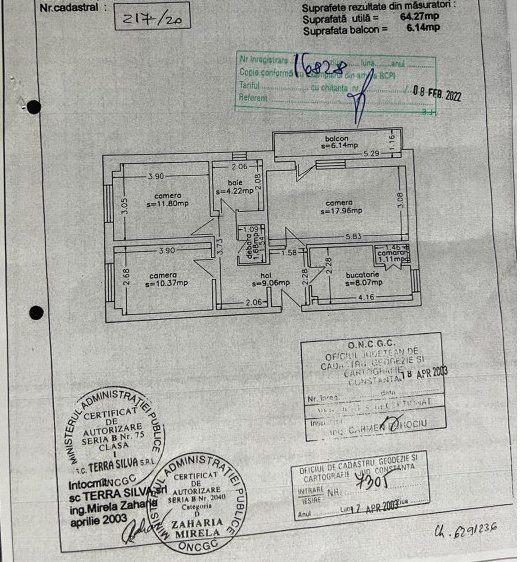 Nr.cadastral :
217/20
Suprafete rezultate din măsuratori :
Suprafată utilă = 64.27mp
Suprafata balcon = 6.14mp
Nr inregistrare 16828 luna anul
Copie conformă cu din BCPI
Tariful cu chitanta nr.
08 FEB. 2022
Referent
balcon
s=6.14mp
5.29
1.16
3.90
camera
s=11.80mp
3.05
2.06
baie
s=4.22mp
2.08
camera
s=17.96mp
3.08
5.83
1.09
debara
1.68mp
3.73
3.90
camera
s=10.37mp
2.68
hol
s=9.06mp
2.06
1.58
2.28
2.28
bucatarie
s=8.07mp
4.16
1.46
camara
1.11mp
O.N.C.G.C.
OFICIUL JUDETEAN DE
CADASTRU GEODEZIE SI
CARTOGRAFIE
CONSTANTA
18 APR 2003
Nr. inreg. data
ING. CARMEN
MINISTERUL ADMINISTRATIEI PUBLICE
CERTIFICAT
DE
AUTORIZARE
SERIA B Nr. 75
CLASA
I
S.C. TERRA SILVA S.R.L.
ONCGC
Intocmit
sc TERRA SILVA srl
ing.Mirela Zaharia
aprilie 2003
MINISTERUL ADMINISTRATIEI PUBLICE
CERTIFICAT
DE
AUTORIZARE
SERIA B Nr. 2040
Categoria
D
ZAHARIA
MIRELA
ONCGC
OFICIUL DE CADASTRU, GEODEZIE SI
CARTOGRAFIE JUD. CONSTANTA
INTRARE
IESIRE
NR. 7305
Anul Luna 17 APR 2003
Ch. 6291236